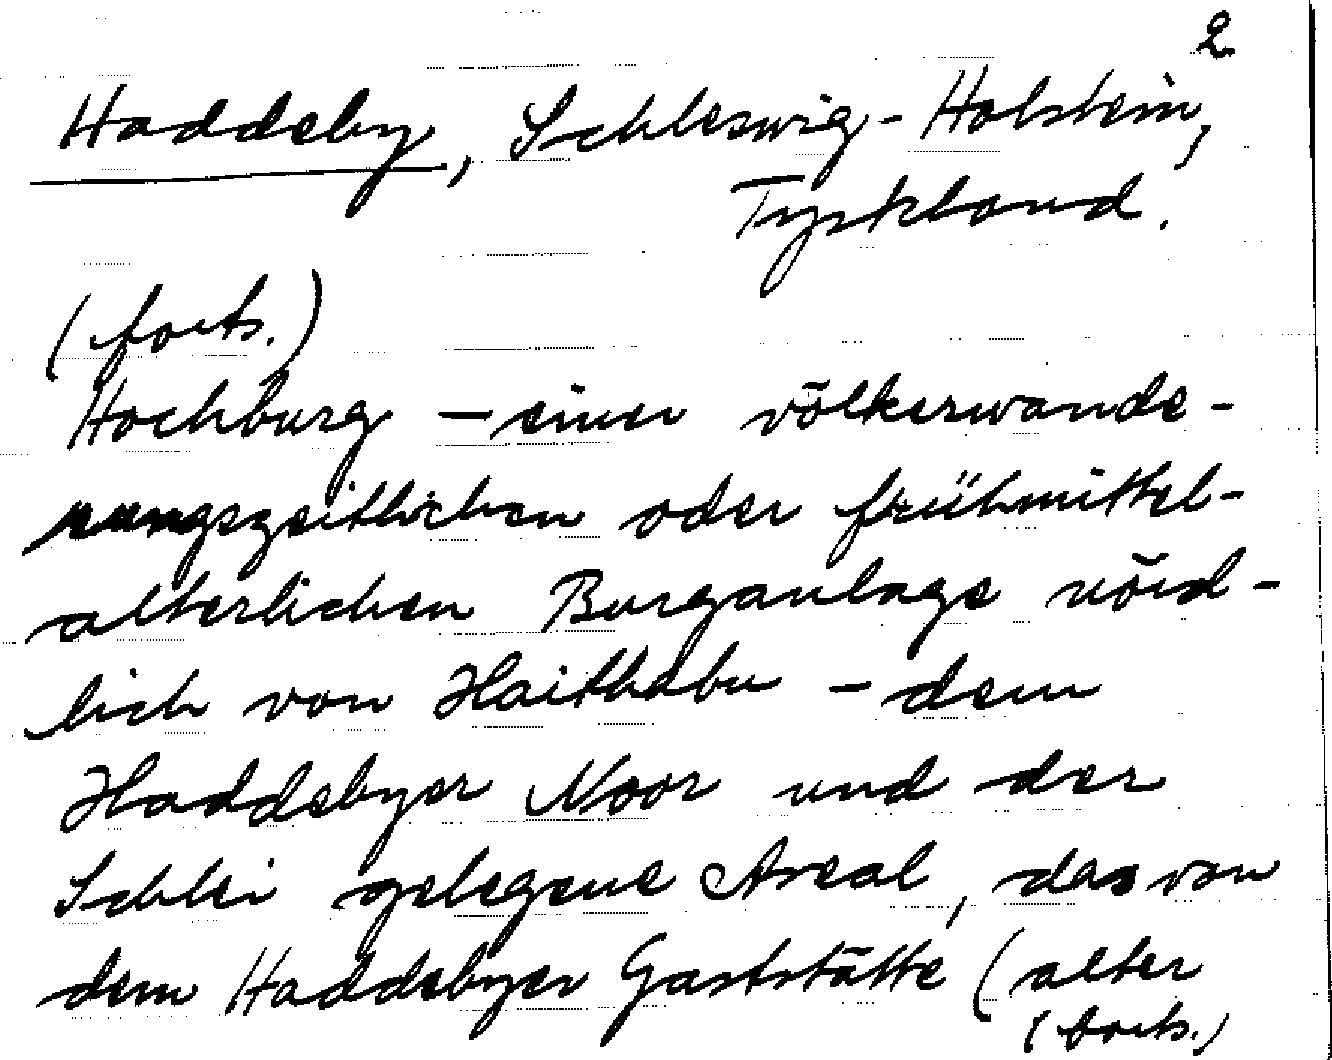 2
Haddeby, Schleswig-Holstein,
Tyskland.
(forts.)
Hochburg – einer völkerwande-
rungszeitlichen oder frühmittel-
alterlichen Burganlage nörd-
lich von Haithabu – dem
Haddebyer Noor und der
Schlei gelegene Areal, das von
dem Haddebyer Gaststätte (alter
(forts.)